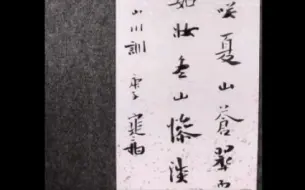 咲夏山蒼翠而
如妝冬山慘淡
山川訓